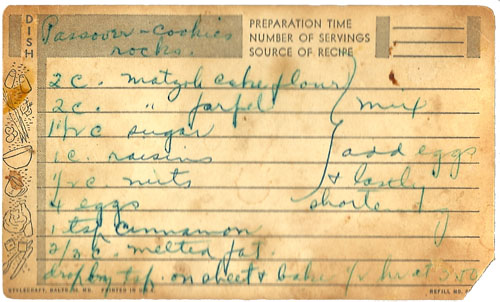 DISH
Passover - cookies
rocks.
PREPARATION TIME
NUMBER OF SERVINGS
SOURCE OF RECIPE
2 c. matzoh cake flour
2 c. " farfel } mix
1 1/2 c sugar
1 c. raisins } add eggs
1/2 c. nuts & lastly
4 eggs shortening
1 tsp cinnamon
2/3 c. melted fat.
drop by tsp. on sheet & bake 1/2 hr at
STYLECRAFT, BALTO, MD. PRINTED IN U.S.A.
REFILL NO.